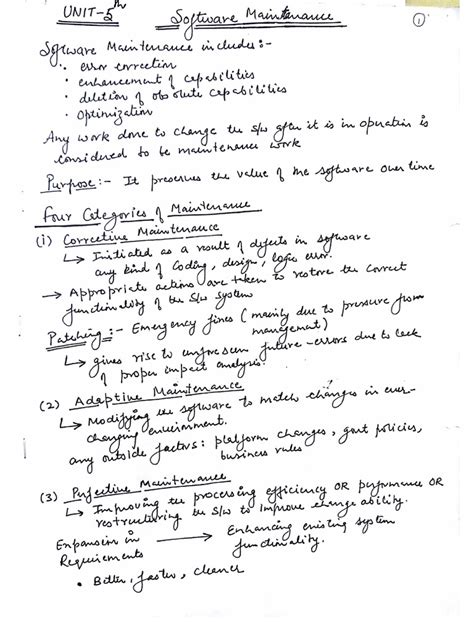 UNIT-5th Software Maintenance ①
Software Maintenance includes:-
• error correction
• enhancement of capabilities
• deletion of obsolute capabilities
• optimization
Any work done to change the s/w after it is in operation is
considered to be maintenance work
Purpose:- It preserves the value of the software over time
Four Categories of Maintenance
(1) Corrective Maintenance
↳ Initiated as a result of defects in software
any kind of coding, design, logic error.
→ Appropriate actions are taken to restore the correct
functionality of the s/w system
Patching:- Emergency fixes (mainly due to pressure from
management)
↳ gives rise to unforeseen future-errors due to lack
of proper impact analysis.
(2) Adaptive Maintenance
↳ Modifying the software to match changes in ever-
changing environment.
any outside factors: platform changes, govt policies,
business rules
(3) Perfective Maintenance
↳ Improving the processing efficiency OR performance OR
restructuring the s/w to improve changeability.
Expansion in → Enhancing existing system
Requirements functionality.
• Better, faster, cleaner